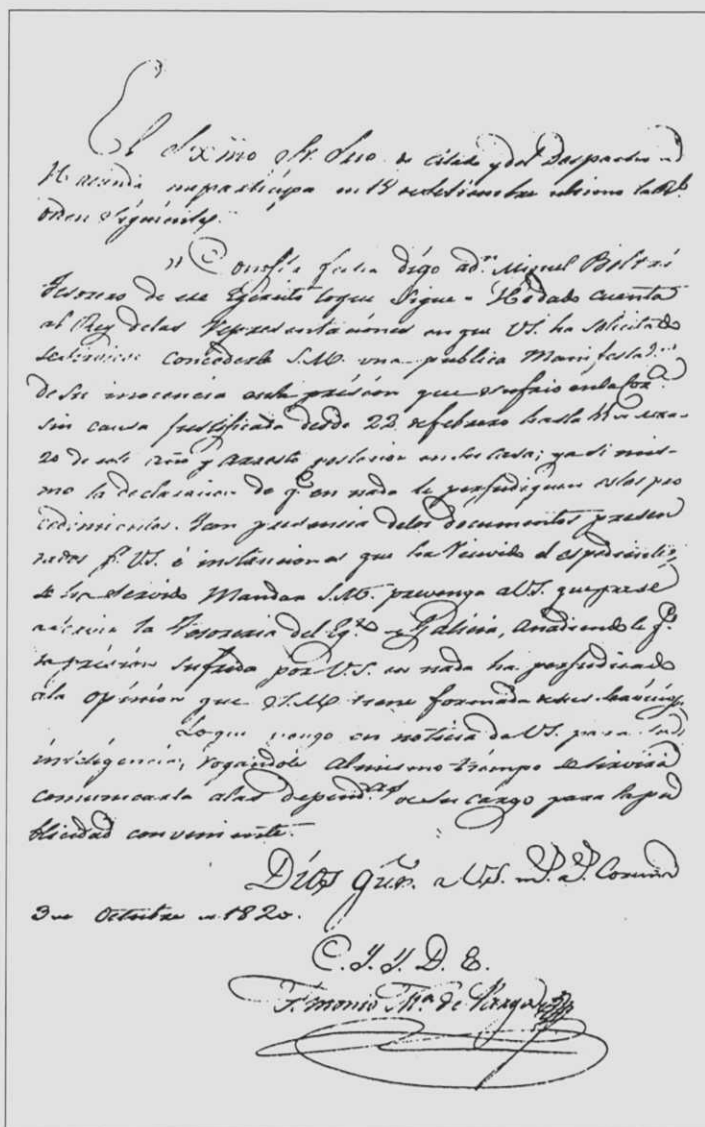 El Exmo Sr. Srio. de Estado y del Despacho de
Hacienda me participa en 18 de Setiembre ultimo la Rl.
orden siguiente.
"Con esta fecha digo a dn. Miguel Beltrá
Tesorero de ese Egército lo que sigue = He dado cuenta
al Rey de las representaciones en que V.S. ha solicitado
se sirviese concederle S.M. una publica manifestac.on
de su inocencia en la prision que sufrio en la Cor.a
sin causa justificada desde 22 de febrero hasta de mar-
zo de este año y arresto posterior en su casa; y asi mis-
mo la declaracion de q.e en nada le perjudiquen estos pro
cedimientos. Y en presencia de los documentos presen
tados p.r V.S. é instancias que ha tenido el espediente,
se ha servido mandar S.M. prevenga a V.S. que pase
a servir la Tesoreria del Eg.to de Galicia, añadiendole q.e
la prision sufrida por V.S. en nada ha perjudicado
a la opinion que S.M. tiene formada de sus servicios.
Lo que pongo en noticia de V.S. para su
inteligencia, rogandole al mismo tiempo se servirá
comunicarla a las depend.as de su cargo para la pu
blicidad conveniente.
Dios gue. a V.S. m.s a.s Coruña
3 de Octubre de 1820.
C. Y. Y. D. E.
Antonio M.a de